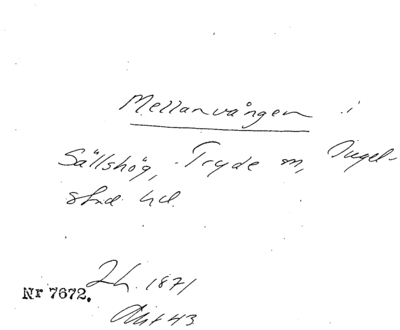 Mellanvången i
Sällshög, Tryde sn, Ingel-
stad hd.
1871
Nr 7672.
Akt 43